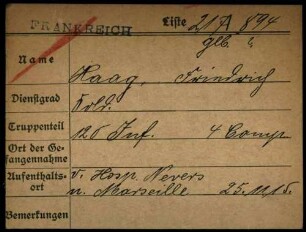 FRANKREICH Liste 21A 894
glb. "
Name Haag, Friedrich
Dienstgrad Sold.
Truppenteil 120 Inf. 4 Comp
Ort der Ge-
fangennahme
Aufenthalts-
ort v. Hosp. Nevers
n. Marseille 25.11.15.
Bemerkungen